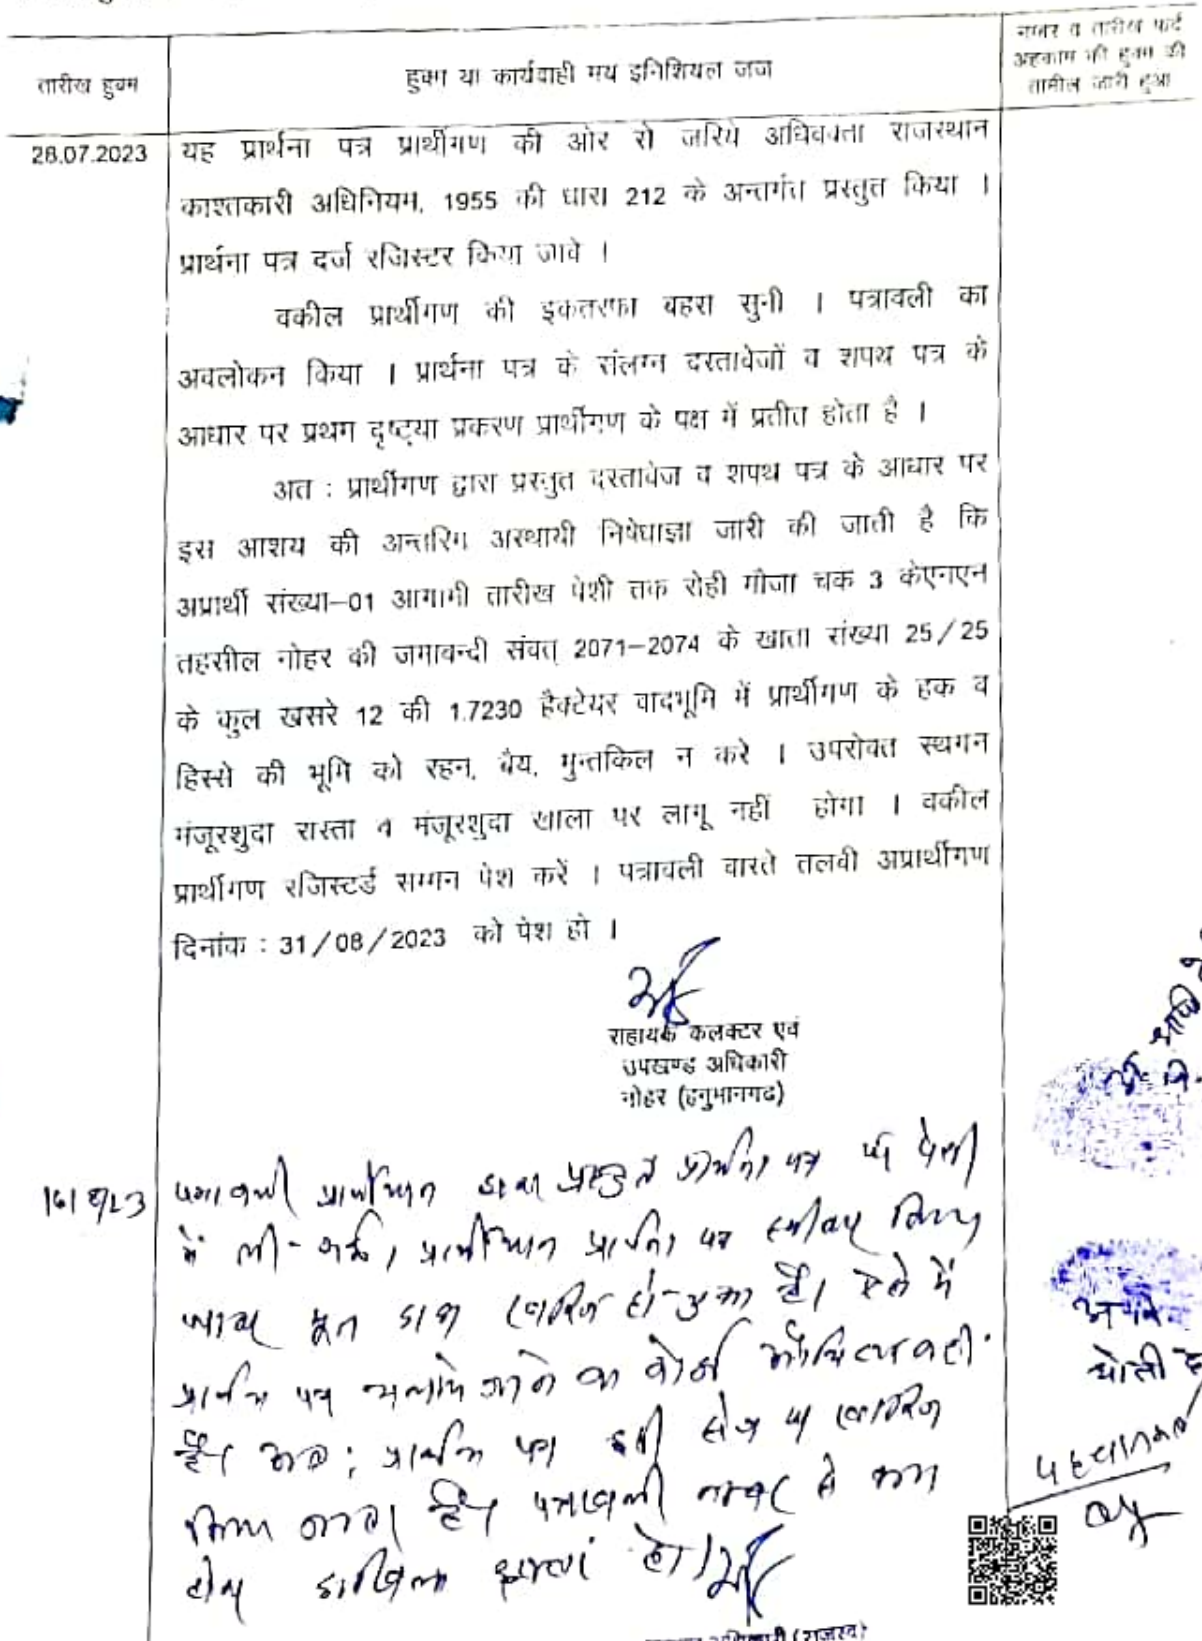 तारीख हुक्म
हुक्म या कार्यवाही मय इनिशियल जज
नम्बर व तारीख फर्द
अहकाम की हुक्म की
तामील जारी हुआ
28.07.2023
यह प्रार्थना पत्र प्रार्थीगण की ओर से जरिये अधिवक्ता राजस्थान
काश्तकारी अधिनियम, 1955 की धारा 212 के अन्तर्गत प्रस्तुत किया ।
प्रार्थना पत्र दर्ज रजिस्टर किया जावे ।
वकील प्रार्थीगण की इकतरफा बहस सुनी । पत्रावली का
अवलोकन किया । प्रार्थना पत्र के संलग्न दस्तावेजों व शपथ पत्र के
आधार पर प्रथम दृष्ट्या प्रकरण प्रार्थीगण के पक्ष में प्रतीत होता है ।
अत : प्रार्थीगण द्वारा प्रस्तुत दस्तावेज व शपथ पत्र के आधार पर
इस आशय की अन्तरिम अस्थायी निषेधाज्ञा जारी की जाती है कि
अप्रार्थी संख्या-01 आगामी तारीख पेशी तक रोही मौजा चक 3 केएनएन
तहसील नोहर की जमाबन्दी संवत् 2071-2074 के खाता संख्या 25/25
के कुल खसरे 12 की 1.7230 हैक्टेयर वादभूमि में प्रार्थीगण के हक व
हिस्से की भूमि को रहन, बैय, मुन्तकिल न करे । उपरोक्त स्थगन
मंजूरशुदा रास्ता व मंजूरशुदा खाला पर लागू नहीं होगा । वकील
प्रार्थीगण रजिस्टर्ड सम्मन पेश करें । पत्रावली वास्ते तलबी अप्रार्थीगण
दिनांक : 31/08/2023 को पेश हो ।
सहायक कलक्टर एवं
उपखण्ड अधिकारी
नोहर (हनुमानगढ)
पत्रावली प्रार्थीगण द्वारा प्रस्तुत प्रार्थना पत्र पर पेशी
में ली गई। प्रार्थीगण प्रार्थना पत्र स्वीकार किया
जाकर मूल वाद खारिज हो चुका है। ऐसे में
प्रार्थना पत्र चलाये जाने का कोई औचित्य नहीं
है। अतः प्रार्थना पत्र इसी स्टेज पर खारिज
किया जाता है। पत्रावली नम्बर से कम
होकर दाखिल दफ्तर हो।
(राजस्व)